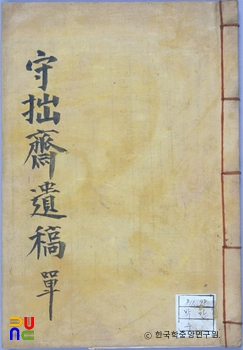 守拙齋遺稿 單
© 한국학중앙연구원